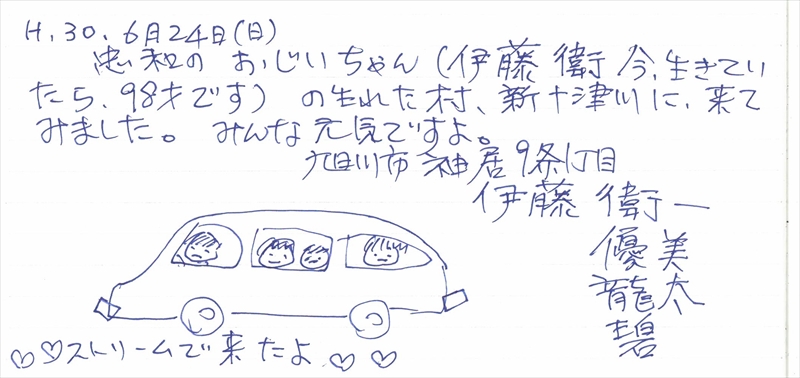 H.30.6月24日(日)
忠和の おじいちゃん(伊藤 衛 今、生きてい
たら、98才です) の生れた村、新十津川に、来て
みました。 みんな元気ですよ。
旭川市 神居9条1丁目
伊藤 衛一
優美
龍太
碧
♡♡ストリームで来たよ ♡♡